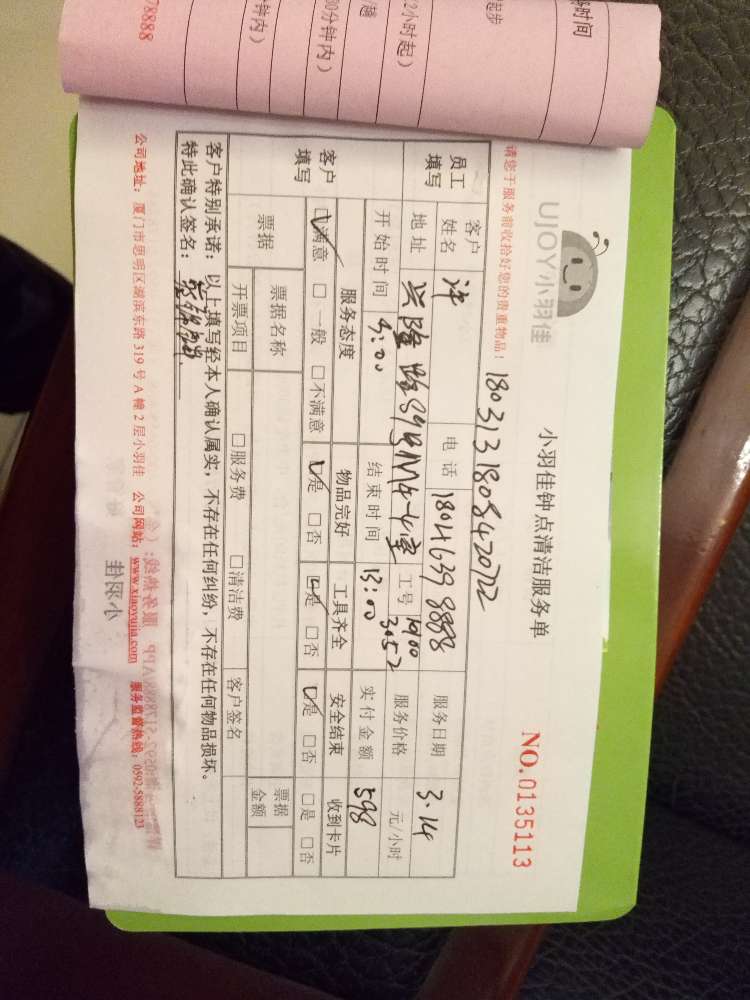 UJOY小羽佳
小羽佳钟点清洁服务单
NO.0135113
请您于服务前收拾好您的贵重物品!
180313180842072
员工填写
客户姓名
许
电话
18046398888
服务日期
3.14
地址
工号
3052
服务价格
元/小时
开始时间
结束时间
13:00
实付金额
598
客户填写
服务态度
物品完好
工具齐全
安全结束
收到卡片
☑满意 □一般 □不满意
☑是 □否
☑是 □否
☑是 □否
□是 □否
票据
票据名称
票据金额
开票项目
□服务费 □清洁费
客户签名
客户特别承诺:以上填写经本人确认属实,不存在任何纠纷,不存在任何物品损坏。
特此确认签名:
公司地址:厦门市思明区湖滨东路319号A幢2层小羽佳 公司网站:www.xiaoyujia.com 服务监督热线:0592-5888123